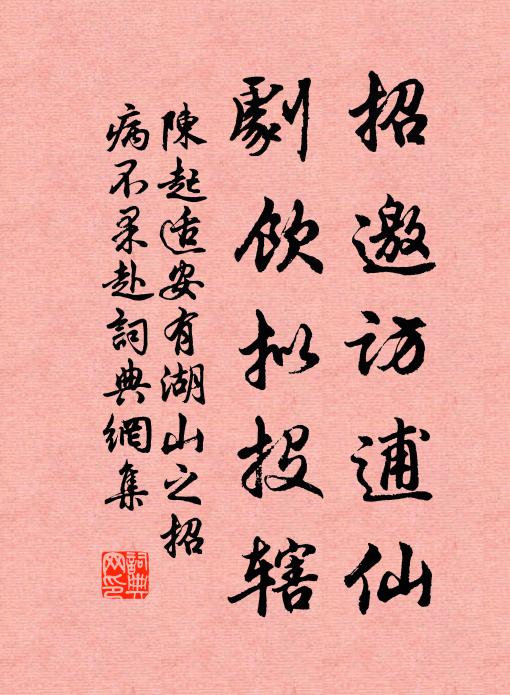 招邀訪逋仙
劇飲拟投辖
陳起适安有湖山之招
病不果赴詞典網集
詞典網印